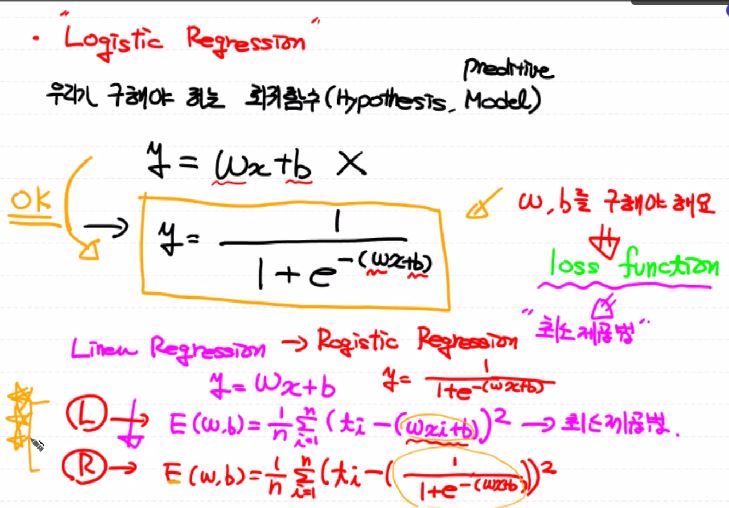 · "Logistic Regression"
Preditive
우리가 구해야 하는 회귀함수(Hypothesis, Model)
y = wx+b X
OK
→ y = 1 / (1+e^-(wx+b))
w,b를 구해야 해요
loss function
"최소제곱법"
Linear Regression → Rogistic Regression
y = wx+b y = 1 / (1+e^-(wx+b))
Ⓛ → E(w,b) = 1/n Σ_{i=1}^{n} (ti - (wxi+b))^2 → 최소제곱법.
Ⓡ → E(w,b) = 1/n Σ_{i=1}^{n} (ti - (1 / (1+e^-(wx+b))))^2